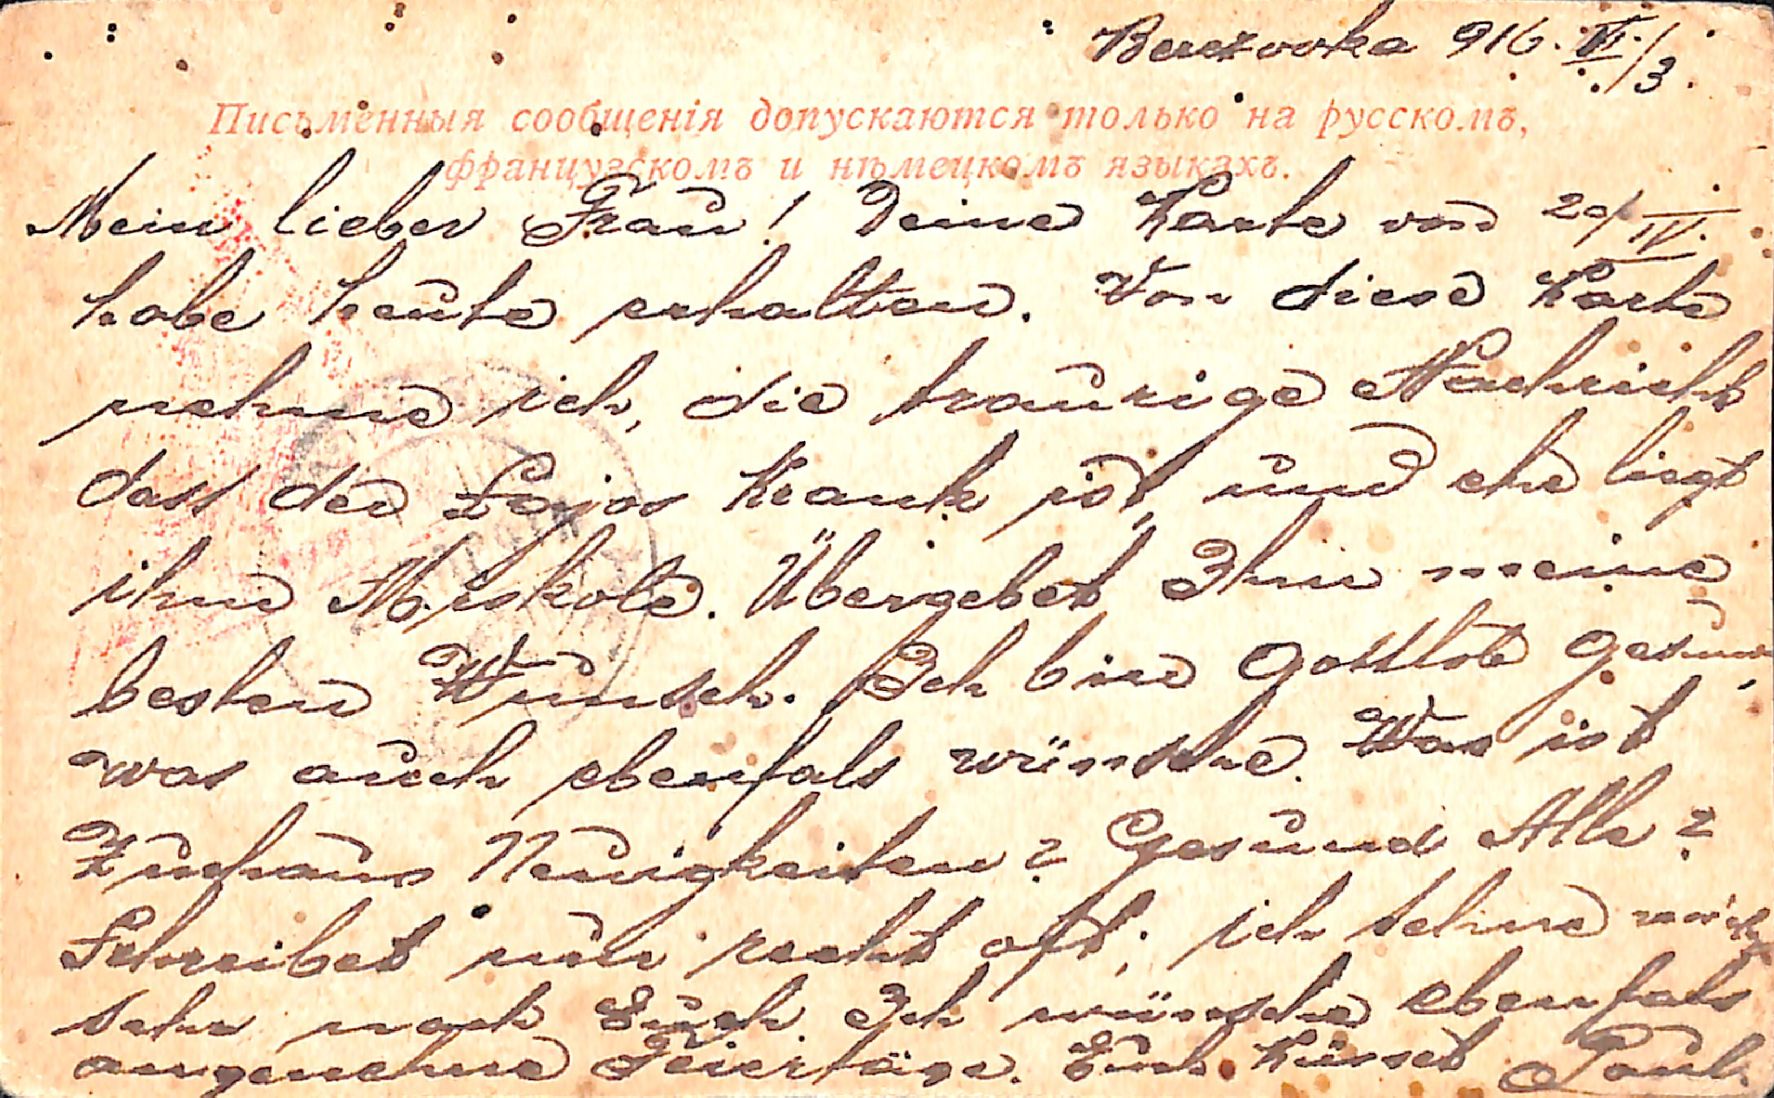 Berezovka 916. VI./3.
Письменныя сообщенія допускаются только на русскомъ,
французскомъ и нѣмецкомъ языкахъ.
Mein lieber Frau! Deine Karte von 20/IV.
habe heute erhalten. Von diese Karte
nehme ich, die traurige Nachricht
dass der Lajos Krank ist, und ehr liegt
ihn Miskolc. Übergebet Ihm meine
besten Wunsch. Ich bin Gottlob gesund,
was auch ebenfals wünsche. Was ist
Zuhaus Neuigkeiten? Gesund Alle?
Schreibet nur recht oft, ich sehne mich
sehr nach Euch. Ich wünsche ebenfals
angenehme Feiertäge. Euch Küsset